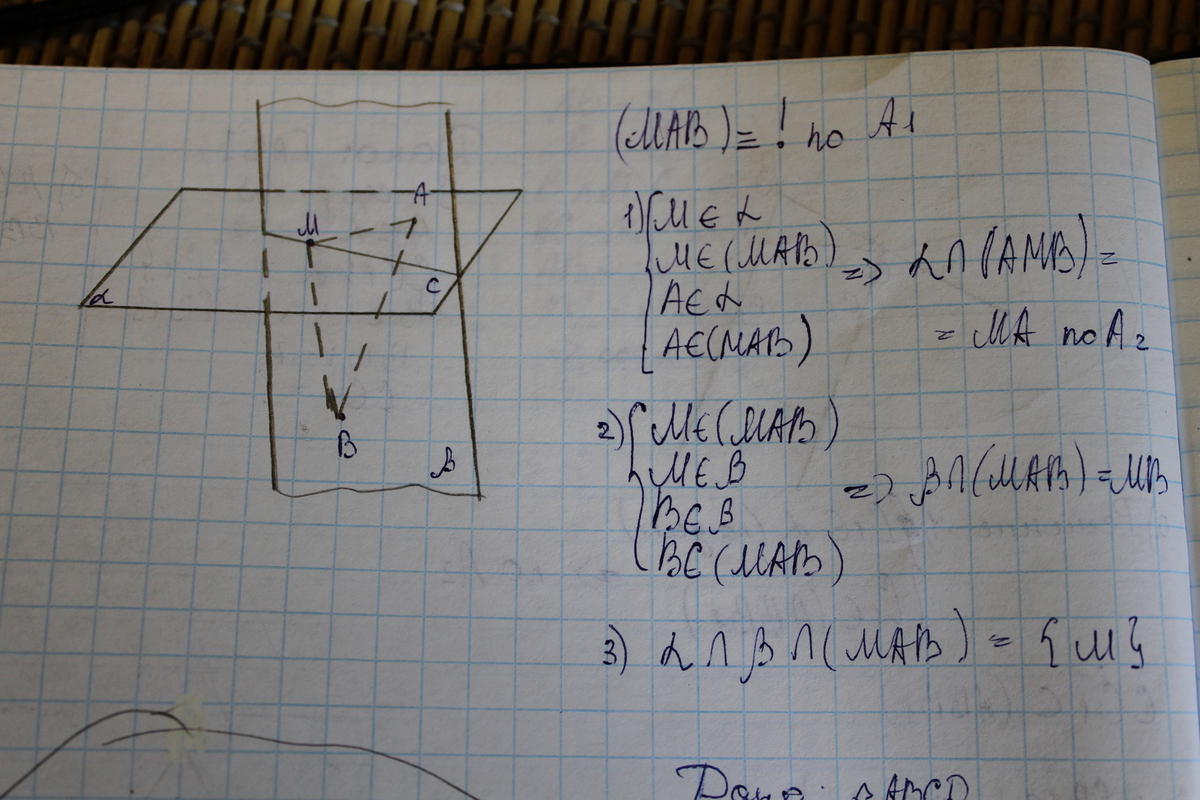 (MAB) = ! по A1
1) M ∈ α
M ∈ (MAB)
A ∈ α
A ∈ (MAB)
=> α ∩ (AMB) =
= MA по A2
2) M ∈ (MAB)
M ∈ β
B ∈ β
B ∈ (MAB)
=> β ∩ (MAB) = MB
3) α ∩ β ∩ (MAB) = {M}
A
M
C
α
B
β
Дано: ABCD